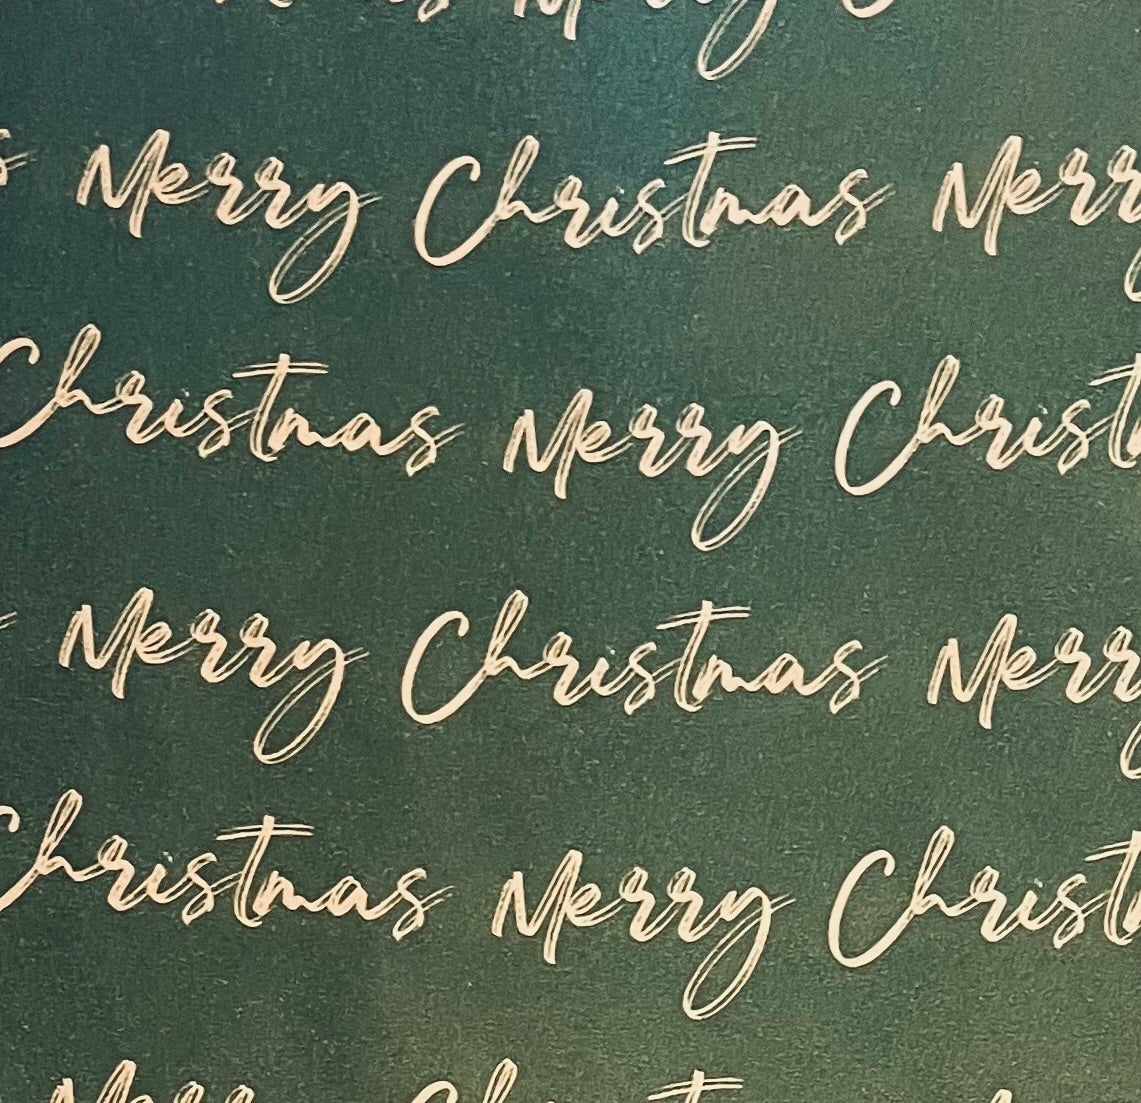 Merry
Merry Christmas Merry
Christmas Merry Christ
Merry Christmas Merry
Christmas Merry Christ